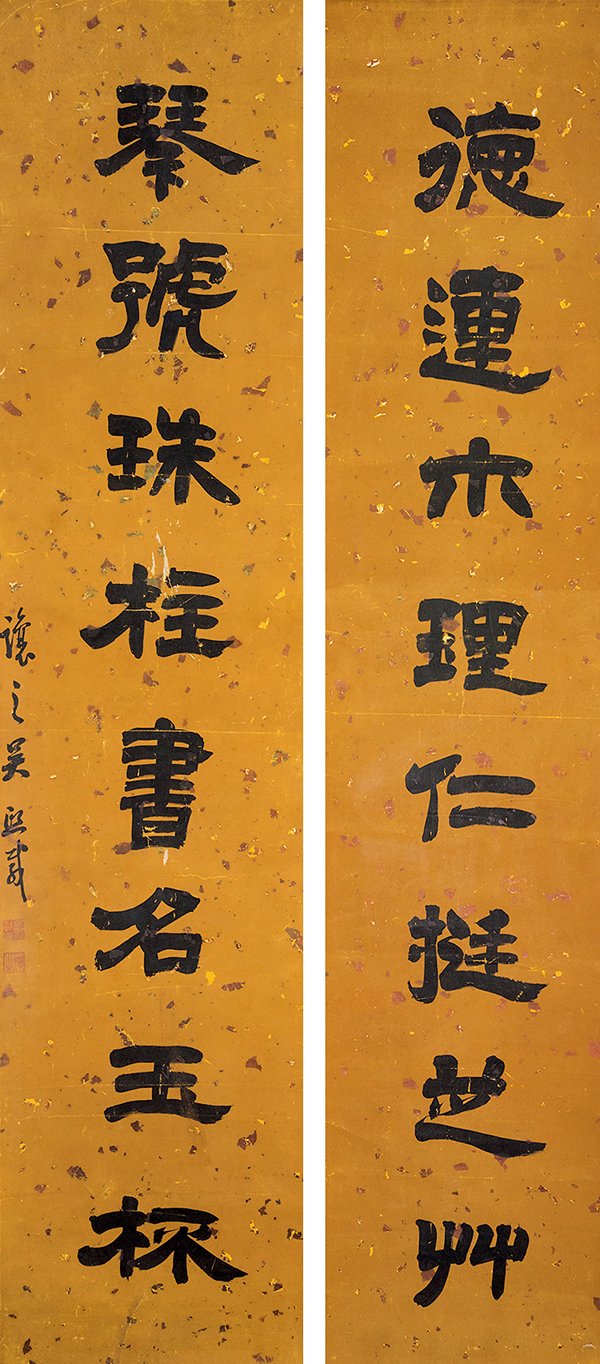 德連木理仁挺芝艸
琴號珠柱書名玉杯
讓之吳熙載